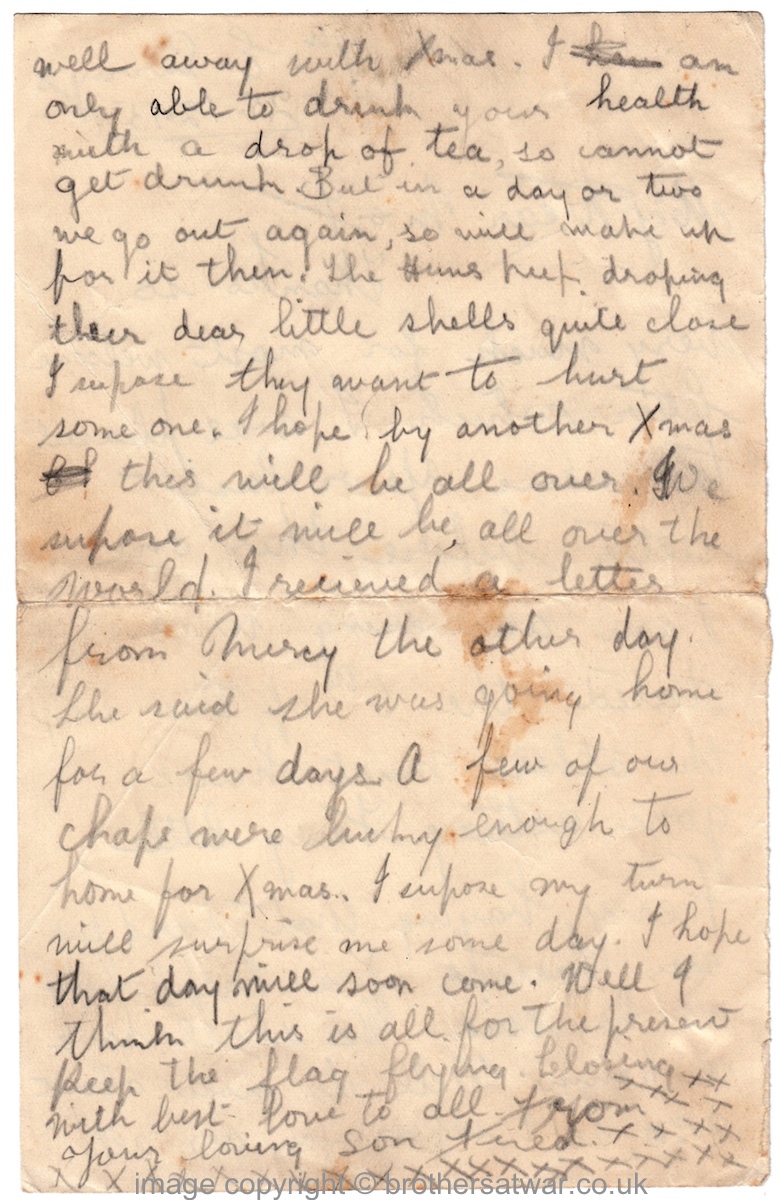 well away with Xmas. I am
only able to drink your health
with a drop of tea, so cannot
get drunk. But in a day or two
we go out again, so will make up
for it then. The Huns keep droping
their dear little shells quite close
I supose they want to hurt
some one. I hope by another Xmas
this will be all over. We
supose it will be, all over the
world. I recieved a letter
from Mercy the other day.
She said she was going home
for a few days. A few of our
chaps were lucky enough to
home for Xmas.. I supose my turn
will surprise me some day. I hope
that day will soon come. Well I
think this is all for the present
Keep the flag flying. Closing xx
with best love to all. From
Your loving Son Fred.
image copyright © brothersatwar.co.uk